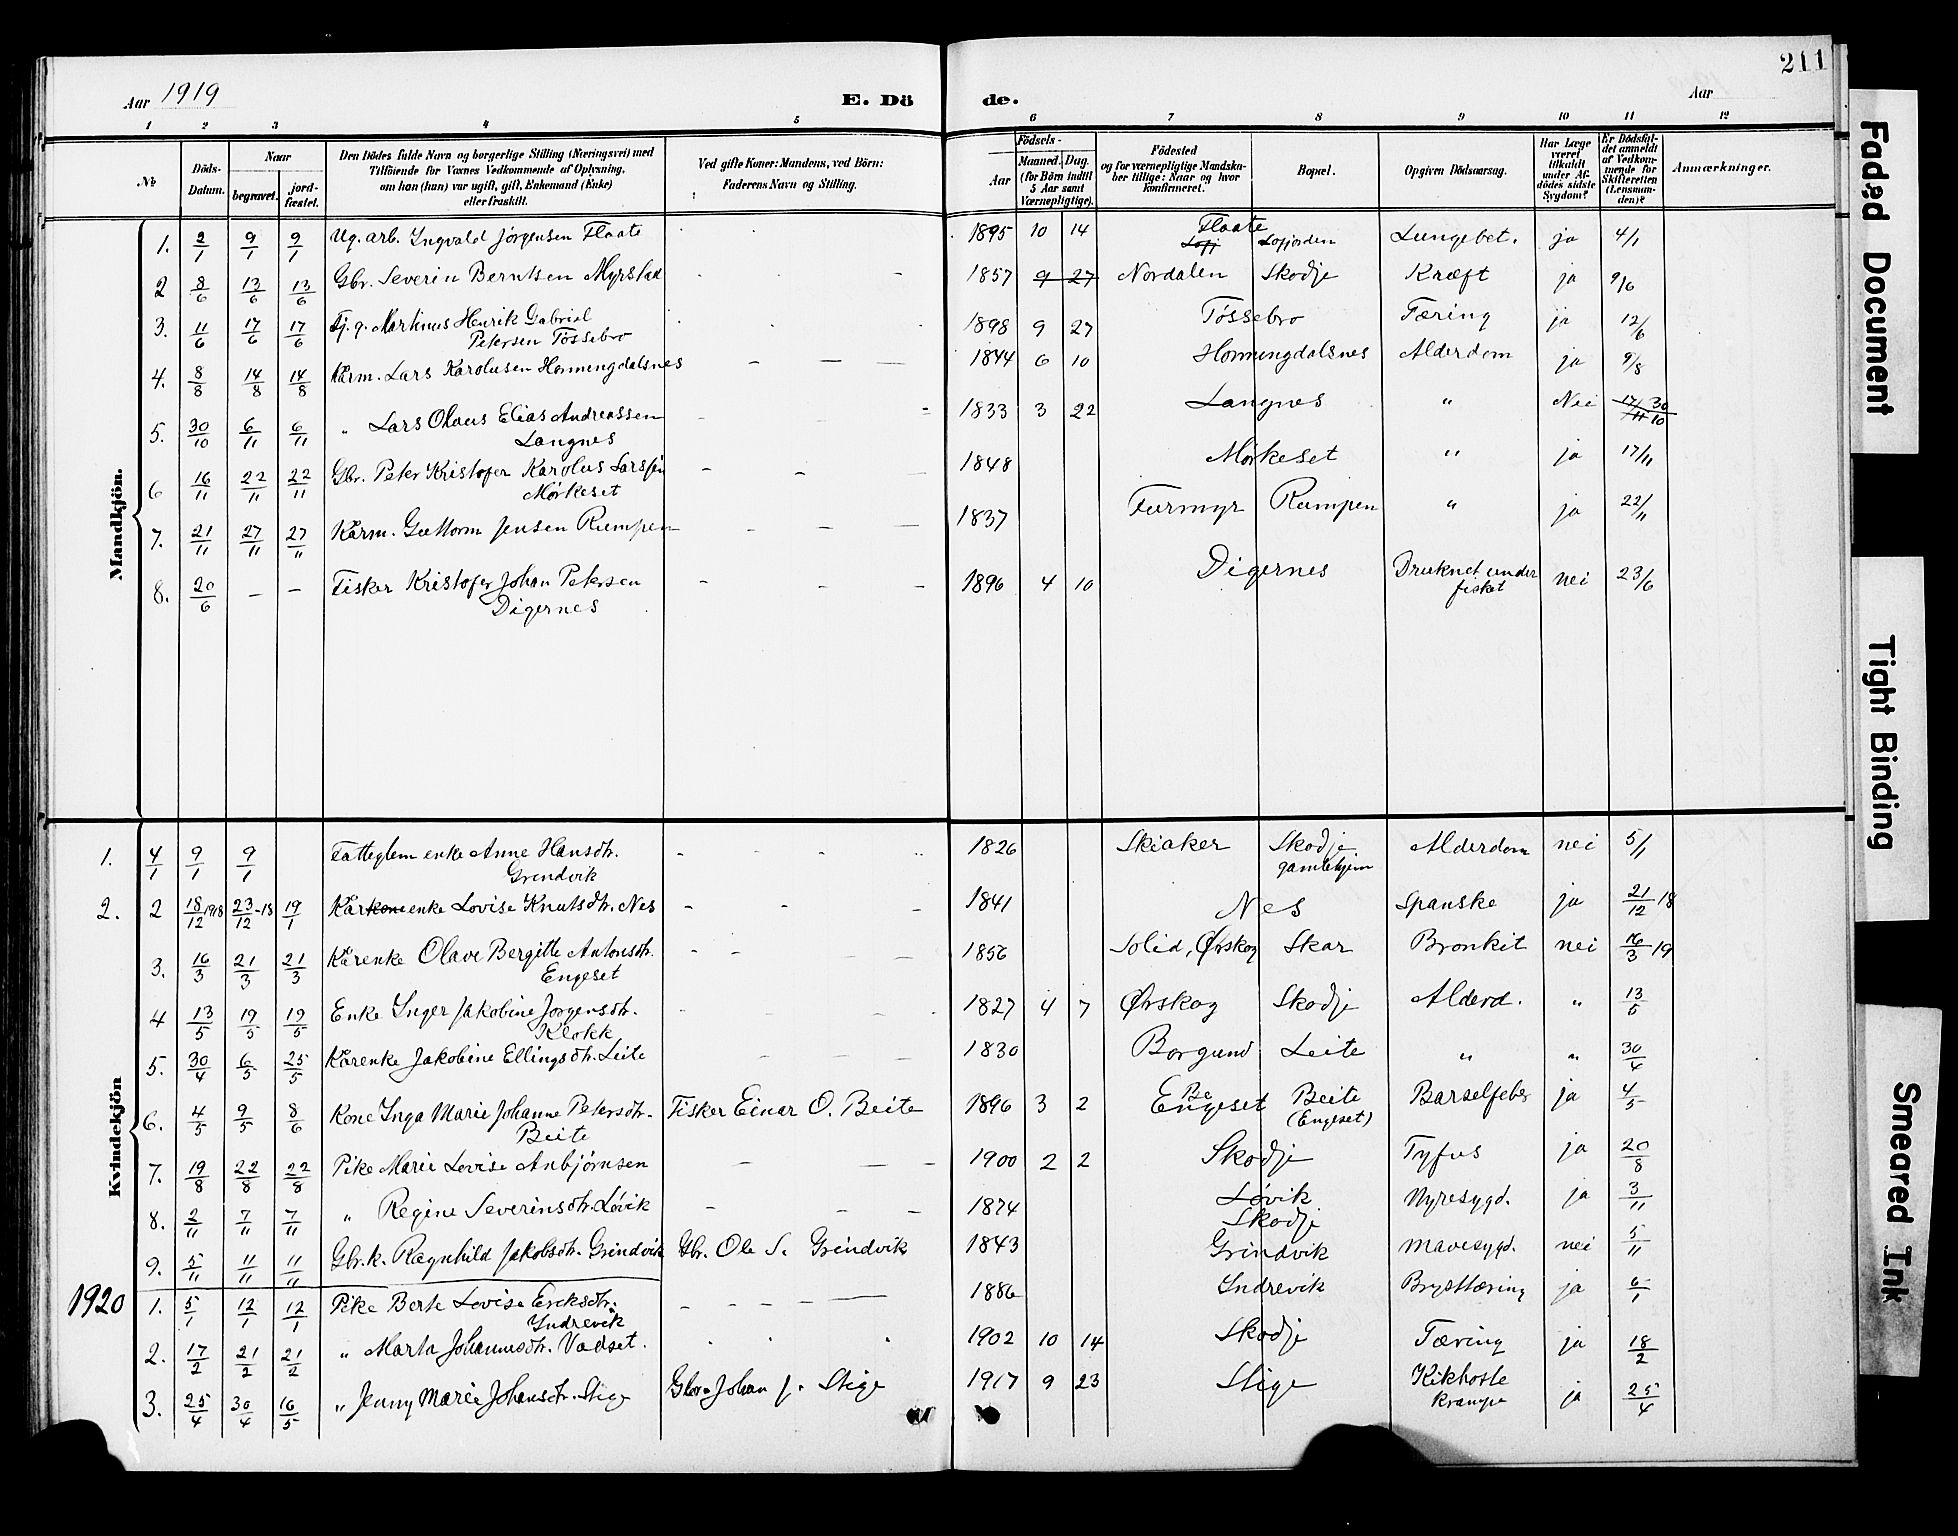 211
Aar 1919
E. Dö de.
Aar
1 2 3 4 5 6 7 8 9 10 11 12
No
Döds-Datum.
Naar
begravet.
jordfæstet.
Den Dödes fulde Navn og borgerlige Stilling (Næringsvei) med
Tilföiende for Voxnes Vedkommende af Oplysning,
om han (hun) var ugift, gift, Enkemand (Enke)
eller fraskilt.
Ved gifte Koner: Mandens, ved Börn:
Faderens Navn og Stilling.
Födsels-
Aar
Maaned. Dag.
(for Börn indtil
5 Aar samt
Værnepligtige).
Födested
og for værnepligtige Mandska-
ber tillige: Naar og hvor
konfirmeret.
Bopæl.
Opgiven Dödsaarsag.
Har Læge
været
tilkaldt
under Af-
dödes sidste
Sygdom?
Er Dödsfal-
det anmeldt
af Vedkom-
mende for
Skifteretten
(Lensman-
den)?
Anmærkninger.
Mandkjön.
1. 2/1 9/1 9/1 Ug. arb. Ingvald Jørgensen Flaate 1895 10 14 Flaate Lofj Lofjorden Lungebet. ja 4/1
2 8/6 13/6 13/6 Gbr. Severin Berntsen Myrstad 1857 9 27 Nordalen Skodje Kræft ja 9/6
3. 11/6 17/6 17/6 Tj. g. Martinus Henrik Gabriel
Petersen Tøssebro 1898 9 27 Tøssebro Tæring ja 12/6
4. 8/8 14/8 14/8 Kårm. Lars Karolusen Honningdalsnes 1844 6 10 Honningdalsnes Alderdom ja 9/8
5. 30/10 6/11 6/11 " Lars Olaus Elias Andreassen
Langnes 1833 3 22 Langnes " Nei 17/11 30/10
6 16/11 22/11 22/11 Gbr. Peter Kristofer Karolus Larssen
Mørkeset 1848 Mørkeset " ja 17/11
7. 21/11 27/11 27/11 Kårm. Guttorm Jensen Rumpen 1837 Furmyr Rumpen " ja 22/11
8. 20/6 – – Fisker Kristofer Johan Petersen
Digernes 1896 4 10 Digernes Druknet under
fisket nei 23/6
Kvindekjön
1. 4/1 9/1 9/1 Fatteglem enke Anne Hansdtr.
Grindvik 1826 Skiaker Skodje
gamlehjem Alderdom nei 5/1
2. 2 18/12 1918 23/12 -18 19/1 Kårkone enke Lovise Knutsdtr. Nes 1841 Nes Spanske ja 21/12 18
3. 16/3 21/3 21/3 Kårenke Olave Bergitte Antonsdtr.
Engeset 1856 Solid, Ørskog Skar Bronkit nei 16/3 19
4 13/5 19/5 19/5 Enke Inger Jakobine Jørgensdtr.
Klokk 1827 4 7 Ørskog Skodje Alderd. " 13/5
5. 30/4 6/5 25/5 Kårenke Jakobine Ellingsdtr. Leite 1830 Borgund Leite " " 30/4
6. 4/5 9/5 8/6 Kone Inga Marie Johanne Petersdtr.
Beite Fisker Einar O. Beite 1896 3 2 Be Engeset Beite
(Engeset) Barselfeber ja 4/5
7. 19/8 22/8 22/8 Pike Marie Lovise Anbjørnsen 1900 2 2 Skodje Tyfus ja 20/8
8. 2/11 7/11 7/11 " Regine Severinsdtr. Løvik 1874 Løvik
Skodje Nyresygd. ja 3/11
9. 5/11 11/11 11/11 Gbr.k. Ragnhild Jakobsdtr. Grindvik Gbr. Ole S. Grindvik 1843 Grindvik Mavesygd. nei 5/11
1920 1. 5/1 12/1 12/1 Pike Berte Lovise Eriksdtr.
Indrevik 1886 Indrevik Brysttæring ja 6/1
2. 17/2 21/2 21/2 " Marta Johannesdtr. Vadset. 1902 10 14 Skodje Tæring ja 18/2
3. 25/4 30/4 16/5 " Jenny Marie Johansdtr. Stige Gbr. Johan J. Stige 1917 9 23 Stige Kikhoste
krampe ja 25/4
Faded Document
Tight Binding
Smeared Ink